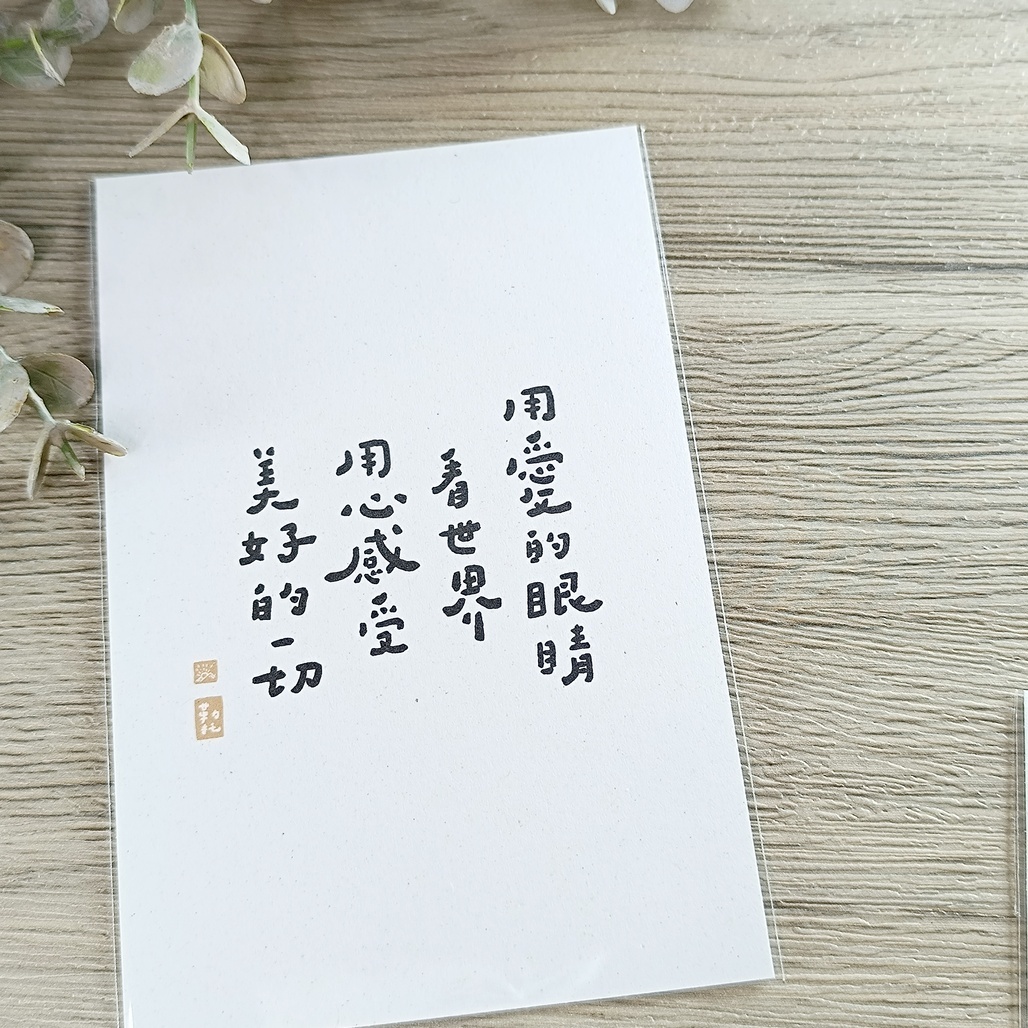 用愛的眼睛
看世界
用心感受
美好的一切